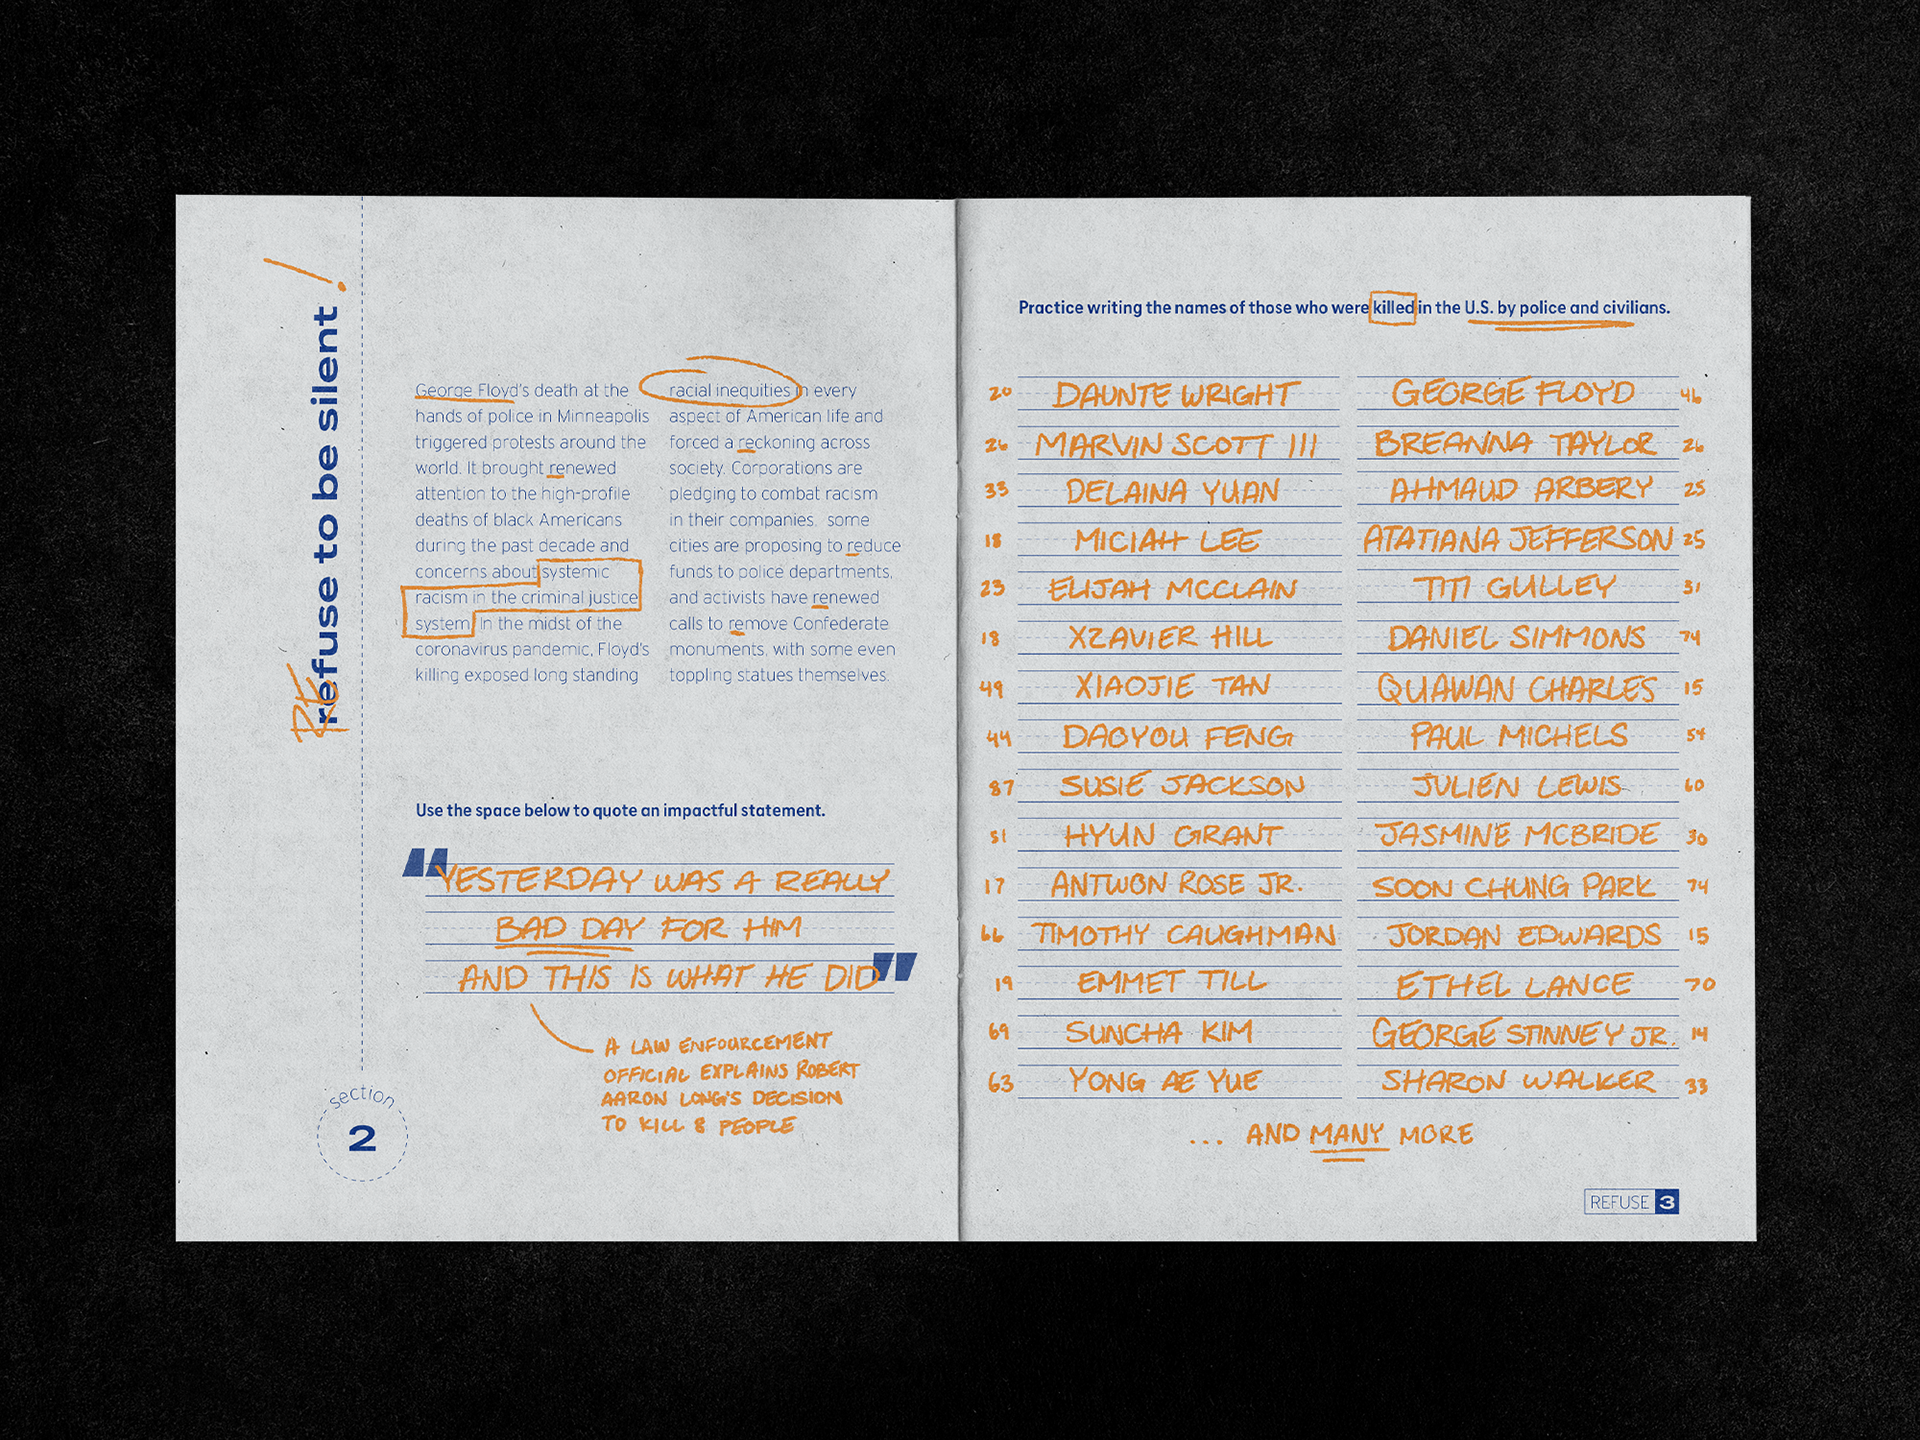 REfuse to be silent!
George Floyd's death at the
hands of police in Minneapolis
triggered protests around the
world. It brought renewed
attention to the high-profile
deaths of black Americans
during the past decade and
concerns about systemic
racism in the criminal justice
system. In the midst of the
coronavirus pandemic, Floyd's
killing exposed long standing
racial inequities in every
aspect of American life and
forced a reckoning across
society. Corporations are
pledging to combat racism
in their companies. some
cities are proposing to reduce
funds to police departments,
and activists have renewed
calls to remove Confederate
monuments, with some even
toppling statues themselves.
Use the space below to quote an impactful statement.
"YESTERDAY WAS A REALLY
BAD DAY FOR HIM
AND THIS IS WHAT HE DID"
A LAW ENFOURCEMENT
OFFICIAL EXPLAINS ROBERT
AARON LONG'S DECISION
TO KILL 8 PEOPLE
section
2
Practice writing the names of those who were killed in the U.S. by police and civilians.
20 DAUNTE WRIGHT GEORGE FLOYD 46
26 MARVIN SCOTT III BREANNA TAYLOR 26
33 DELAINA YUAN AHMAUD ARBERY 25
18 MICIAH LEE ATATIANA JEFFERSON 25
23 ELIJAH MCCLAIN TITI GULLEY 31
18 XZAVIER HILL DANIEL SIMMONS 74
49 XIAOJIE TAN QUAWAN CHARLES 15
44 DAOYOU FENG PAUL MICHELS 54
87 SUSIE JACKSON JULIEN LEWIS 60
51 HYUN GRANT JASMINE MCBRIDE 30
17 ANTWON ROSE JR. SOON CHUNG PARK 74
66 TIMOTHY CAUGHMAN JORDAN EDWARDS 15
19 EMMET TILL ETHEL LANCE 70
69 SUNCHA KIM GEORGE STINNEY JR. 14
63 YONG AE YUE SHARON WALKER 33
... AND MANY MORE
REFUSE 3